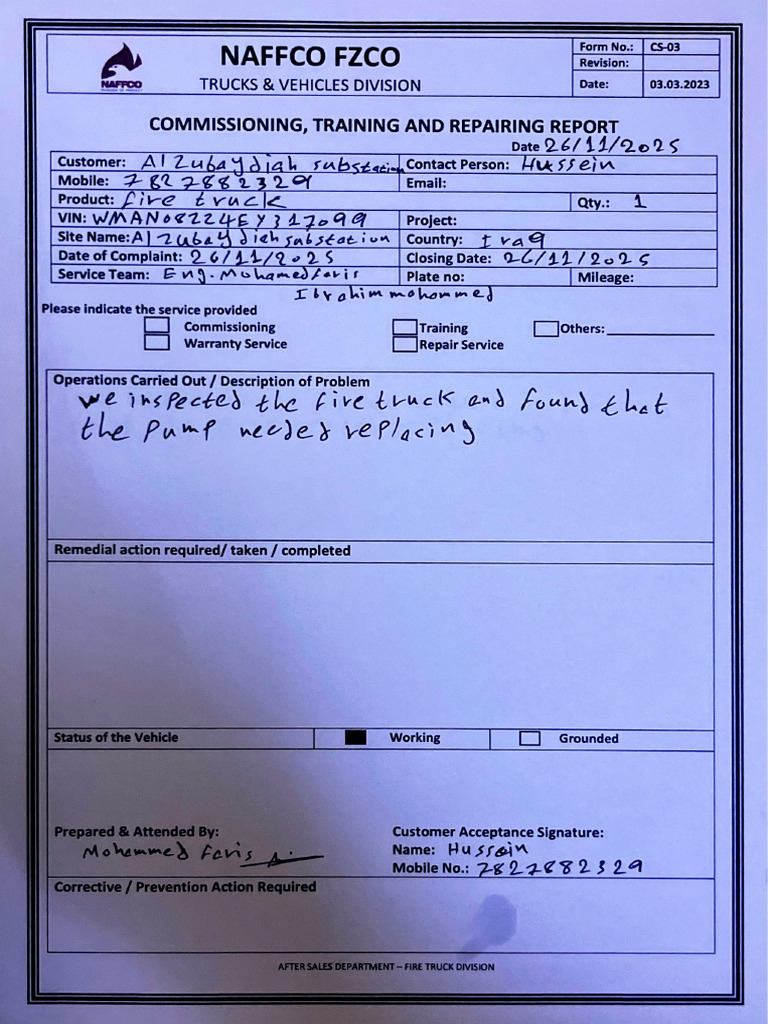 NAFFCO
NAFFCO FZCO
TRUCKS & VEHICLES DIVISION
Form No.: CS-03
Revision:
Date: 03.03.2023
COMMISSIONING, TRAINING AND REPAIRING REPORT
Date 26/11/2025
Customer: Al Zubaydiah substation Contact Person: Hussein
Mobile: 7827882329 Email:
Product: fire truck Qty.: 1
VIN: WMAN08224EY317099 Project:
Site Name: Al Zubaydiah substation Country: Iraq
Date of Complaint: 26/11/2025 Closing Date: 26/11/2025
Service Team: Eng. Mohamed faris Plate no: Mileage:
Ibrahim mohommed
Please indicate the service provided
Commissioning Training Others:
Warranty Service Repair Service
Operations Carried Out / Description of Problem
we inspected the fire truck and found that
the pump needed replacing
Remedial action required/ taken / completed
Status of the Vehicle Working Grounded
Prepared & Attended By: Customer Acceptance Signature:
Mohemmed Faris Name: Hussein
Mobile No.: 7827882329
Corrective / Prevention Action Required
AFTER SALES DEPARTMENT – FIRE TRUCK DIVISION